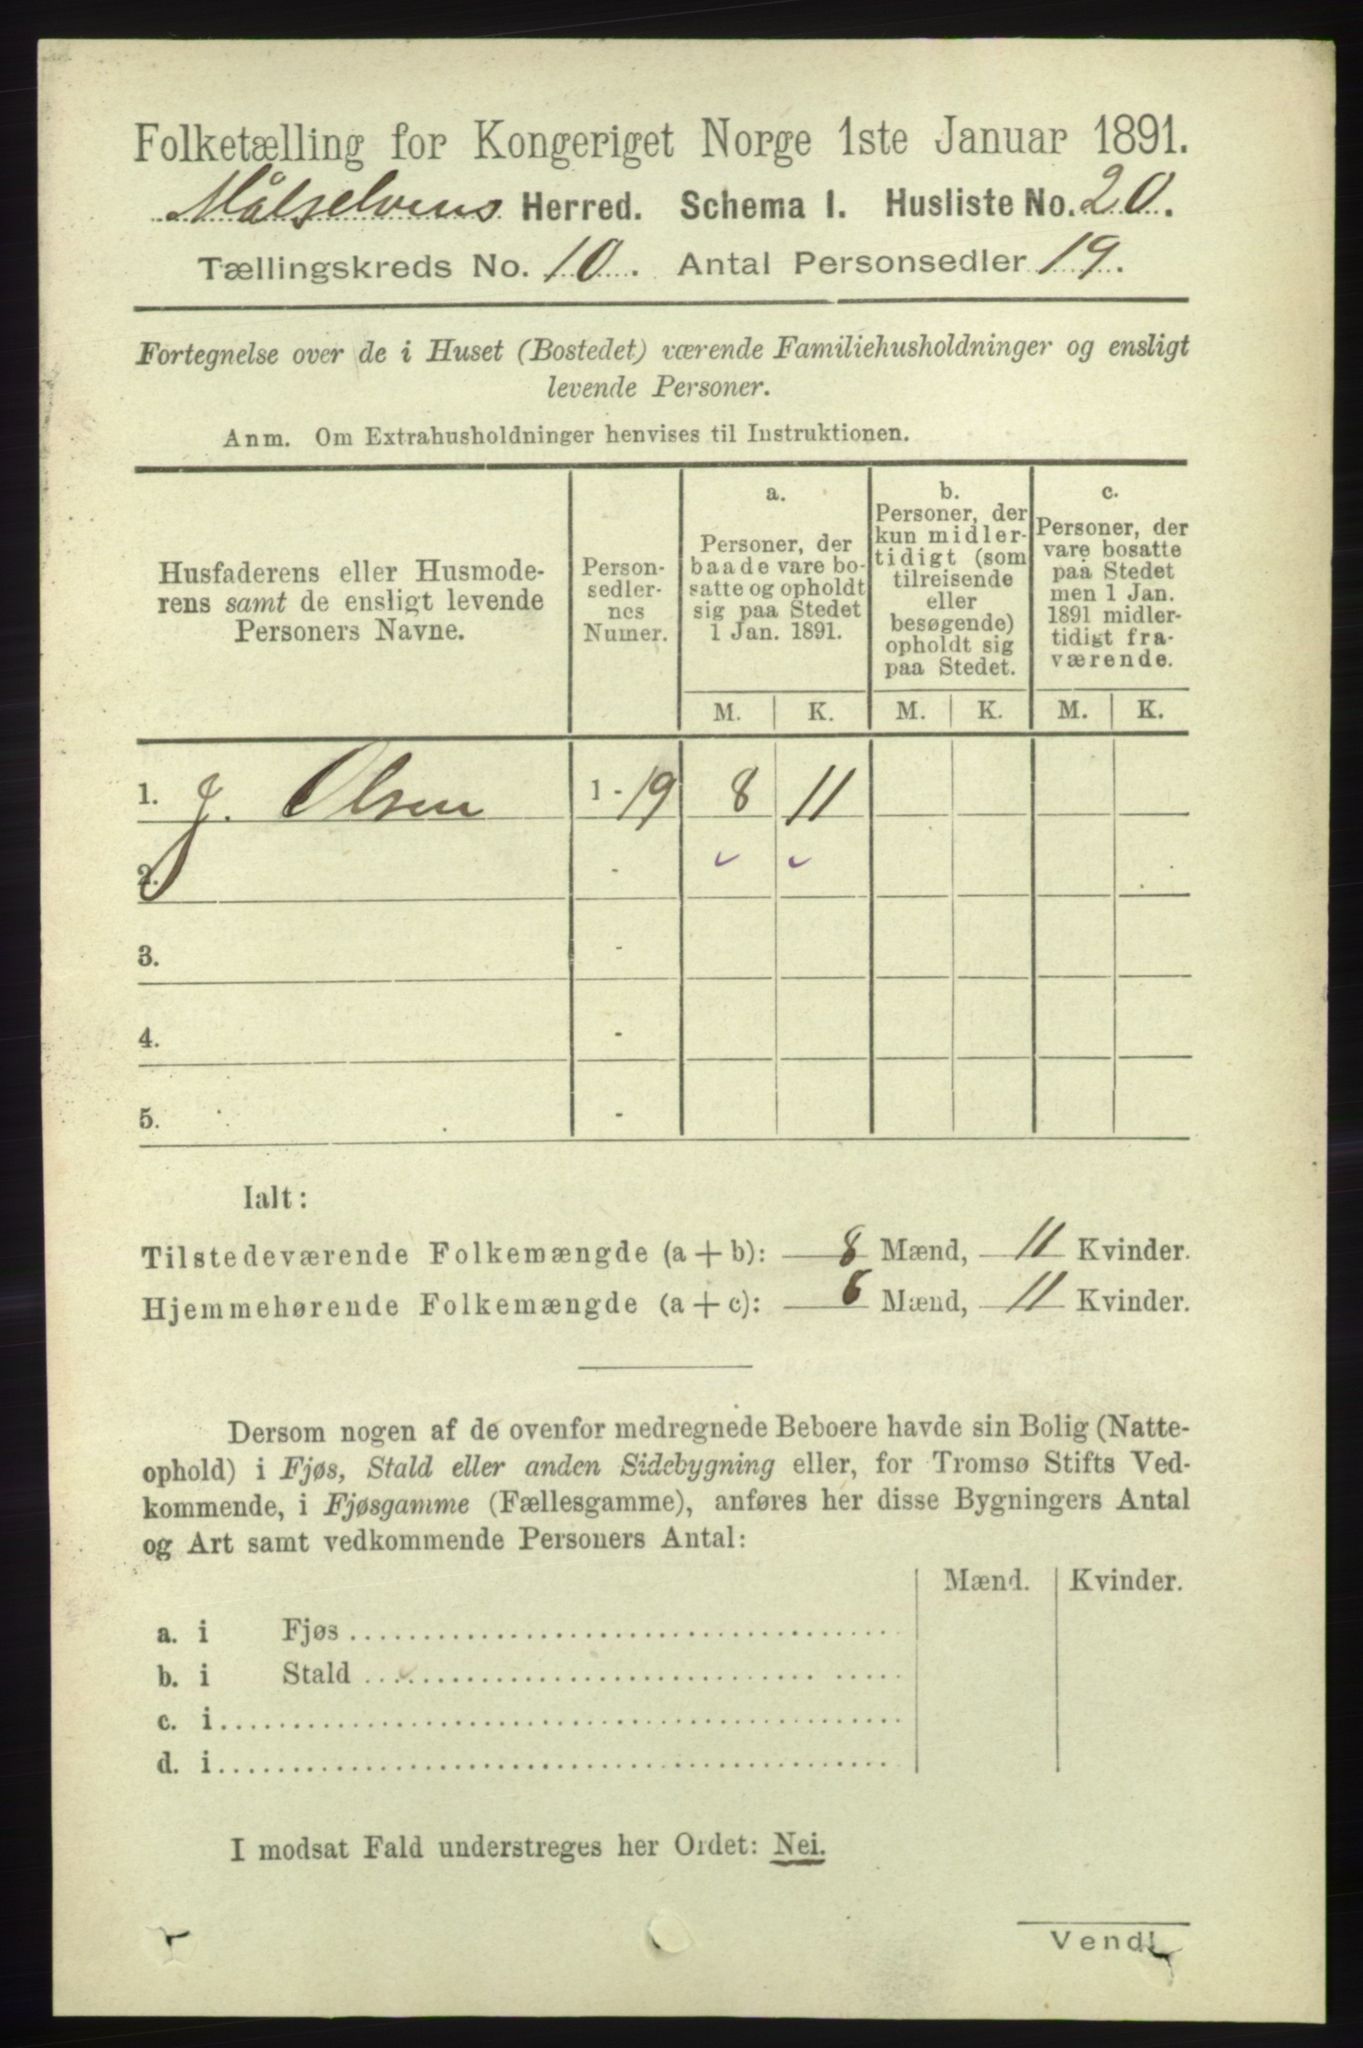 Folketælling for Kongeriget Norge 1ste Januar 1891.
Målselvens Herred. Schema I. Husliste No. 20.
Tællingskreds No. 10. Antal Personsedler 19.
Fortegnelse over de i Huset (Bostedet) værende Familiehusholdninger og ensligt
levende Personer.
Anm. Om Extrahusholdninger henvises til Instruktionen.
Husfaderens eller Husmode-
rens samt de ensligt levende
Personers Navne.
Person-
sedler-
nes
Numer.
a.
Personer, der
baade vare bo-
satte og opholdt
sig paa Stedet
1 Jan. 1891.
M. K.
b.
Personer, der
kun midler-
tidigt (som
tilreisende
eller
besøgende)
opholdt sig
paa Stedet.
M. K.
c.
Personer, der
vare bosatte
paa Stedet
men 1 Jan.
1891 midler-
tidigt fra-
værende.
M. K.
1. J. Olsen 1 - 19 8 11
2. -
3. -
4. -
5. -
Ialt:
Tilstedeværende Folkemængde (a + b): 8 Mænd, 11 Kvinder.
Hjemmehørende Folkemængde (a + c): 8 Mænd, 11 Kvinder.
Dersom nogen af de ovenfor medregnede Beboere havde sin Bolig (Natte-
ophold) i Fjøs, Stald eller anden Sidebygning eller, for Tromsø Stifts Ved-
kommende, i Fjøsgamme (Fællesgamme), anføres her disse Bygningers Antal
og Art samt vedkommende Personers Antal:
Mænd. Kvinder.
a. i Fjøs
b. i Stald
c. i
d. i
I modsat Fald understreges her Ordet: Nei.
Vend!